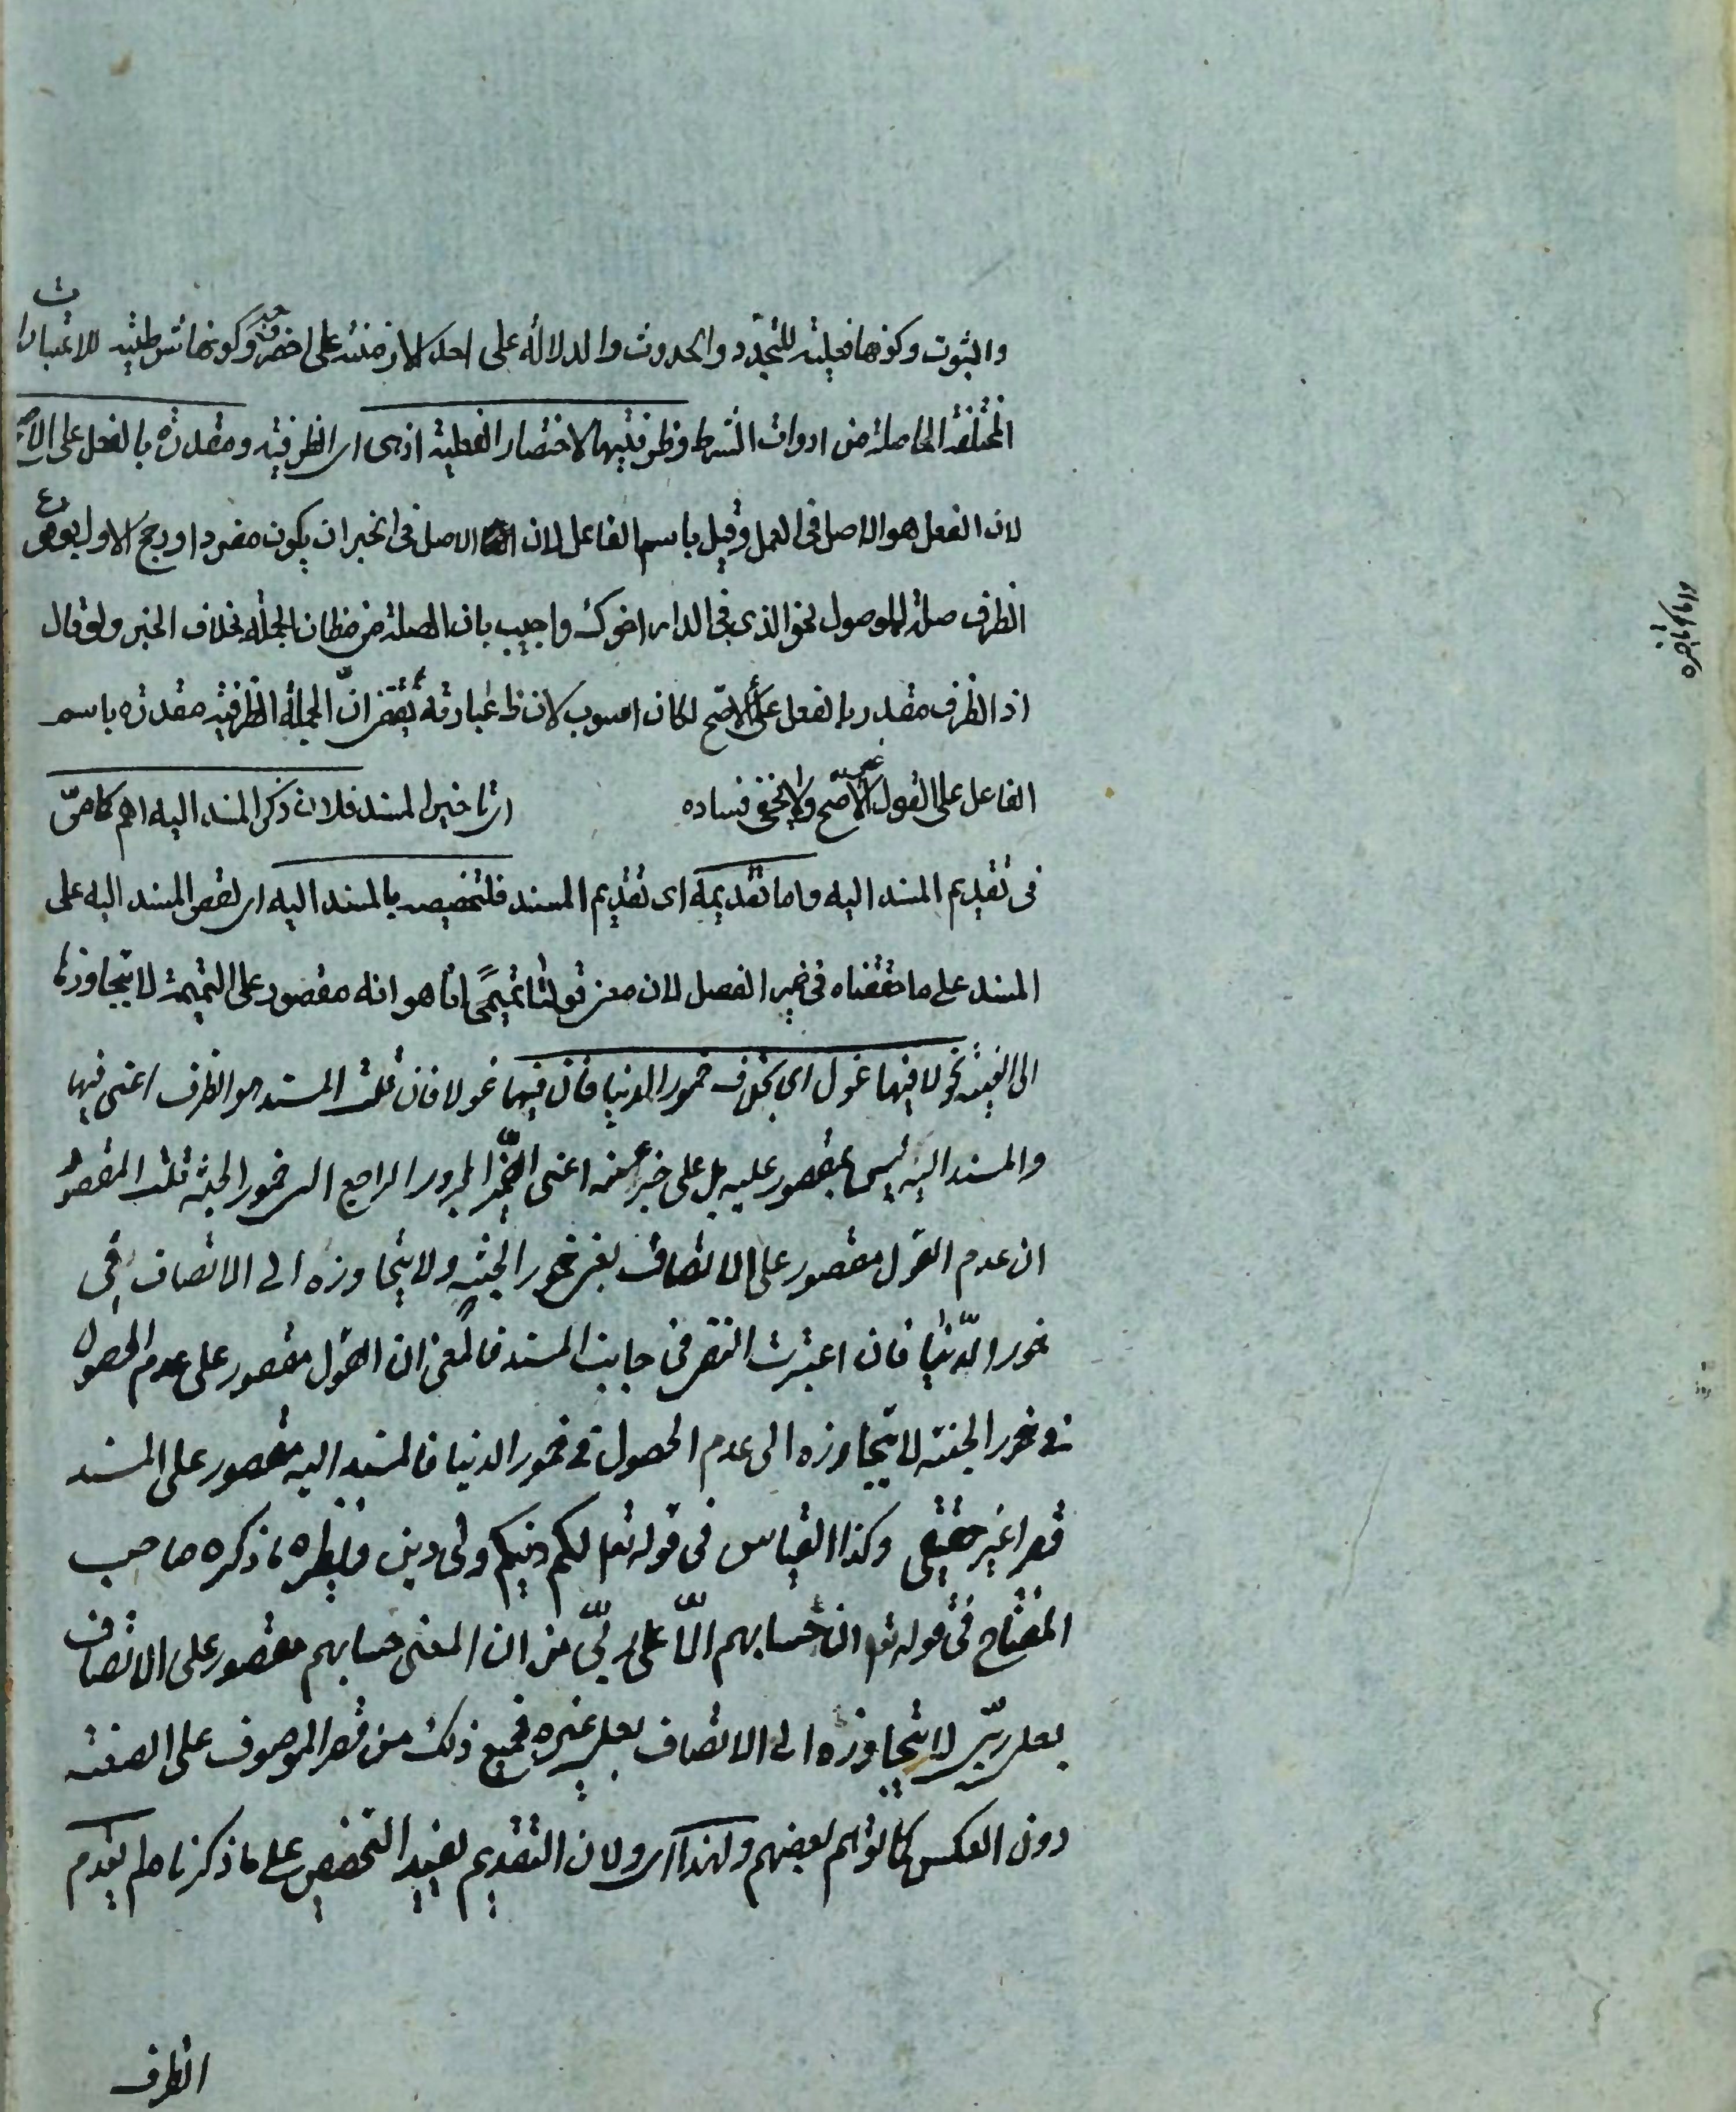 والثبوت وكونها فعلية للتجدد والحدوث والدلالة على احد الازمنة على اخصر وجه وكونها شرطية للاعتبارات
المختلفة الحاصلة من ادوات الشرط وظرفيتها لاختصار الفعلية اذ هى اى الظرفية مقدرة بالفعل على الاصح
لان الفعل هو الاصل فى العمل وقيل باسم الفاعل لان الاصل فى الخبر ان يكون مفردا ورجح الاول بوقوع
الظرف صلة للموصول نحو الذى فى الدار اخوك واجيب بان الصلة من مظان الجملة بخلاف الخبر ولو قال
اذ الظرف مقدر بالفعل على الاصح لكان اصوب لان ظ عبارته يقتضى ان الجملة الظرفية مقدرة باسم
الفاعل على القول الغير الاصح ولا يخفى فساده اى تاخير المسند فلان ذكر المسند اليه اهم كما مر
فى تقديم المسند اليه واما تقديمه اى تقديم المسند فلتخصيصه بالمسند اليه اى لقصر المسند اليه على
المسند على ما حققناه فى ضمير الفصل لان معنى قولنا تميمى انا هو انه مقصور على التميمية لا يتجاوزها
الى القيسية نحو لا فيها غول اى بخلاف خمور الدنيا فان فيها غولا فان قلت المسند هو الظرف اعنى فيها
والمسند اليه ليس بمقصور عليه بل على جزء منه اعنى الضمير المجرور الراجع الى خمور الجنة قلت المقصود
ان عدم الغول مقصور على الاتصاف بفى خمور الجنة ولا يتجاوزه الى الاتصاف بفى
خمور الدنيا فان اعتبرت النفى فى جانب المسند فالمعنى ان الغول مقصور على عدم الحصول
فى خمور الجنة لا يتجاوزه الى عدم الحصول فى خمور الدنيا فالمسند اليه مقصور على المسند
قصرا غير حقيقى وكذا القياس فى قوله تعا لكم دينكم ولى دين ونظيره ما ذكره صاحب
المفتاح فى قوله تعا ان حسابهم الا على ربى من ان المعنى حسابهم مقصور على الاتصاف
بعلى ربى لا يتجاوزه الى الاتصاف بعلى غيره فجميع ذلك من قصر الموصوف على الصفة
دون العكس كما توهم بعضهم ولهذا اى ولان التقديم يفيد التخصيص على ما ذكرنا لم يقدم
الظرف